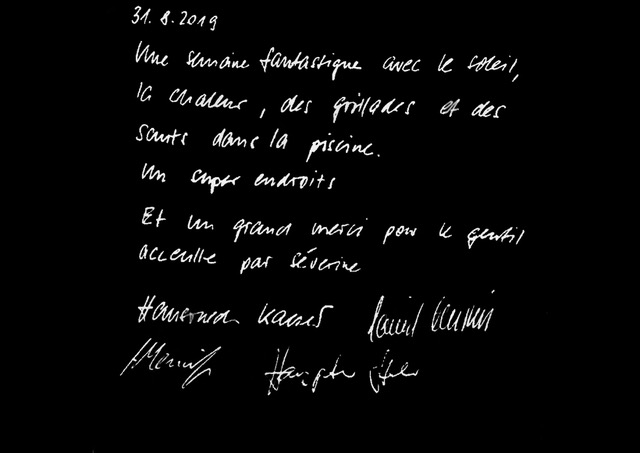 31.8.2019
Une semaine fantastique avec le soleil,
la chaleur, des grillades et des
sauts dans la piscine.
Un super endroits
Et un grand merci pour le gentil
acceuille par Séverine